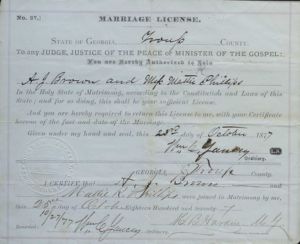 No. 37.
MARRIAGE LICENSE.
STATE OF GEORGIA, Troup COUNTY.
To any JUDGE, JUSTICE OF THE PEACE or MINISTER OF THE GOSPEL:
You are Hereby Authorized to Join
A. J. Brown and Miss Mattie Phillips
In the Holy State of Matrimony, according to the Constitution and Laws of this
State; and for so doing, this shall be your sufficient License.
And you are hereby required to return this License to me, with your Certificate
hereon of the fact and date of the Marriage.
Given under my hand and seal, this 25th day of October 1877
Wm C. Yancey
Ordinary.
GEORGIA, Troup County.
I CERTIFY that A. J. Brown and
Mattie L Phillips were joined in Matrimony by me, this
day of Eighteen Hundred and Seventy
10/27/77 Wm C Yancey
Ordinary M. G.